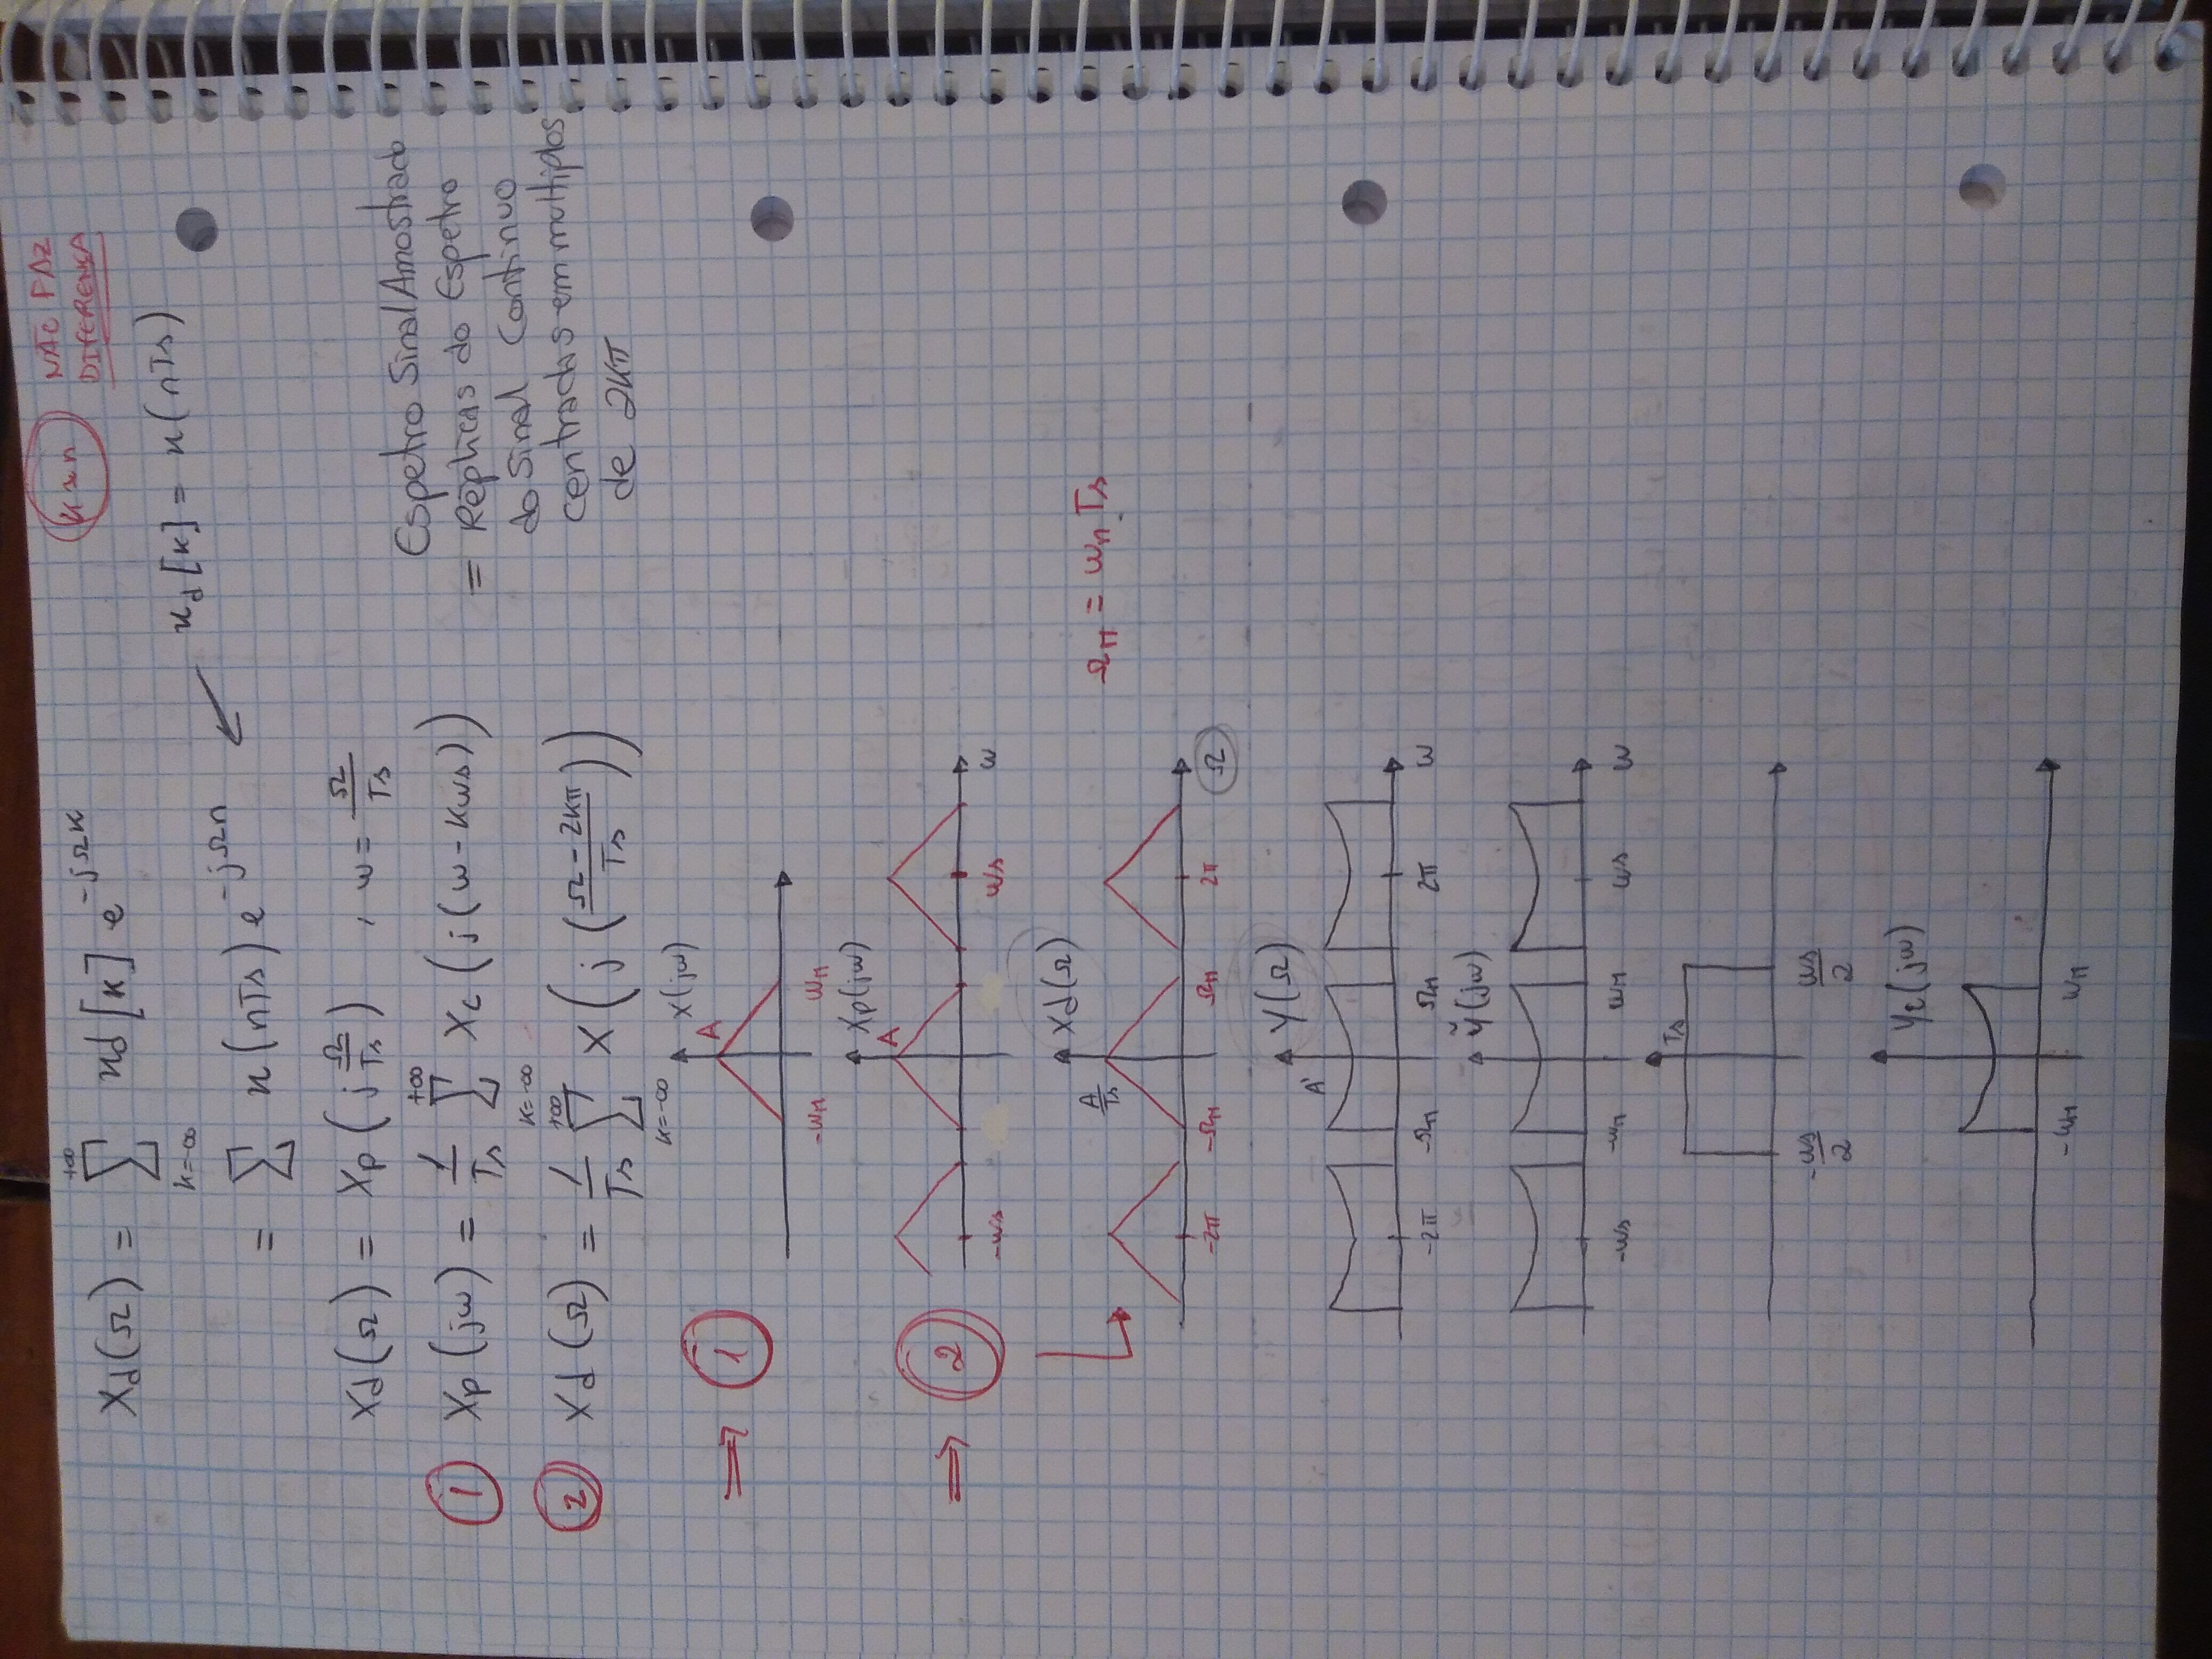 k ≈ n NÃO FAZ
DIFERENÇA
Xd(Ω) = Σ_{k=-∞}^{+∞} xd[k] e^{-jΩk}
xd[k] = x(nTs)
= Σ x(nTs) e^{-jΩn}
Xd(Ω) = Xp(j Ω/Ts) , ω = Ω/Ts
① Xp(jω) = 1/Ts Σ_{k=-∞}^{+∞} Xc(j(ω-kωs))
② Xd(Ω) = 1/Ts Σ_{k=-∞}^{+∞} X(j(Ω-2kπ/Ts))
= Espetro Sinal Amostrado
Réplicas do Espetro
do Sinal Contínuo
centradas em multiplos
de 2kπ
⇒ ① X(jω)
A
-ωM ωM
Xp(jω)
⇒ ② A
-ωs ωs ω
Xd(Ω)
A/Ts ΩM = ωM Ts
-2π -ΩM ΩM 2π Ω
Y(Ω)
A'
-2π -ΩM ΩM 2π ω
Ỹ(jω)
-ωs -ωM ωM ωs ω
Ts
-ωs/2 ωs/2
Yc(jω)
-ωM ωM